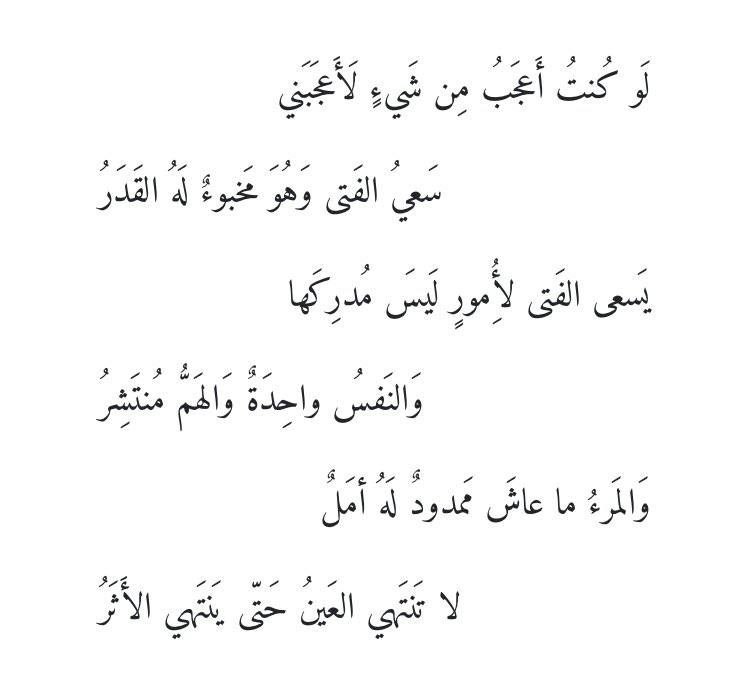 لَو كُنتُ أَعجَبُ مِن شَيءٍ لَأَعجَبَني
سَعيُ الفَتى وَهُوَ مَخبوءٌ لَهُ القَدَرُ
يَسعى الفَتى لِأُمورٍ لَيسَ مُدرِكَها
وَالنَفسُ واحِدَةٌ وَالهَمُّ مُنتَشِرُ
وَالمَرءُ ما عاشَ مَمدودٌ لَهُ أمَلٌ
لا تَنتَهي العَينُ حَتّى يَنتَهي الأَثَرُ